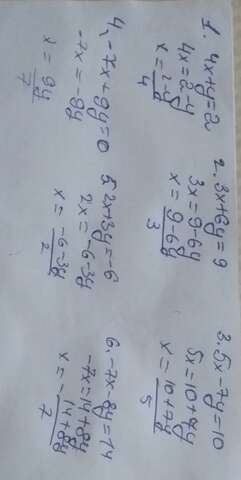 1. 4x+y=2
4x=2-y
x=2-y/4
2. 3x+6y=9
3x=9-6y
x=9-6y/3
3. 5x-7y=10
5x=10+7y
x=10+7y/5
4. -7x+9y=0
-7x=-9y
x=9y/7
5. 2x+3y=-6
2x=-6-3y
x=-6-3y/2
6. -7x-8y=14
-7x=14+8y
x=-14+8y/7